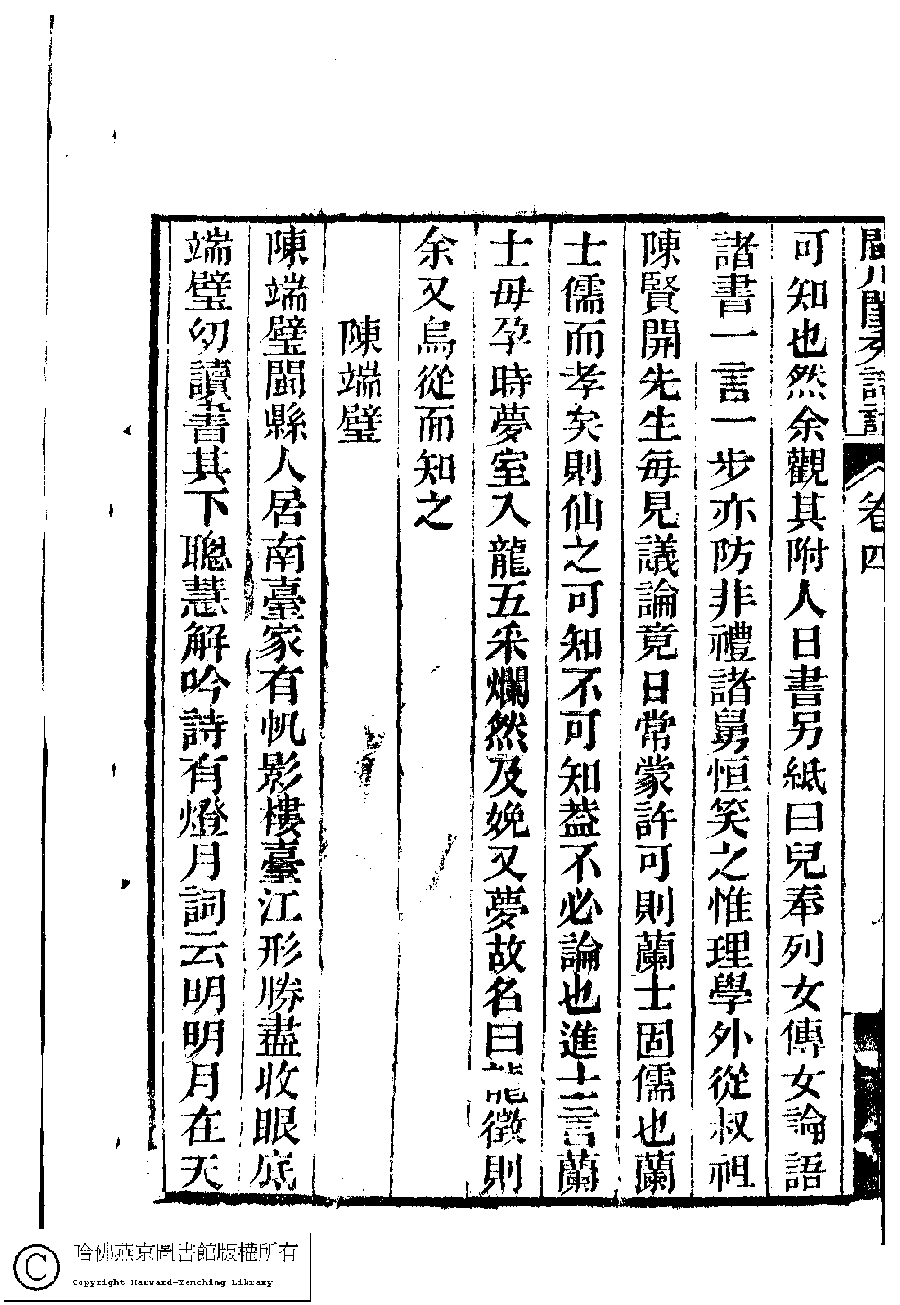 閩川閨秀詩話 卷四
可知也然余觀其附人日書另紙曰兒奉列女傳女論語
諸書一言一步亦防非禮諸舅恒笑之惟理學外從叔祖
陳賢開先生每見議論竟日常蒙許可則蘭士固儒也蘭
士儒而孝矣則仙之可知不可知葢不必論也進士言蘭
士母孕時夢室入龍五采爛然及娩又夢故名曰龍徵則
余又烏從而知之
陳端璧
陳端璧閩縣人居南臺家有帆影樓臺江形勝盡收眼底
端璧幼讀書其下聰慧解吟詩有燈月詞云明明月在天
哈佛燕京圖書館版權所有
Copyright Harvard-Yenching Library